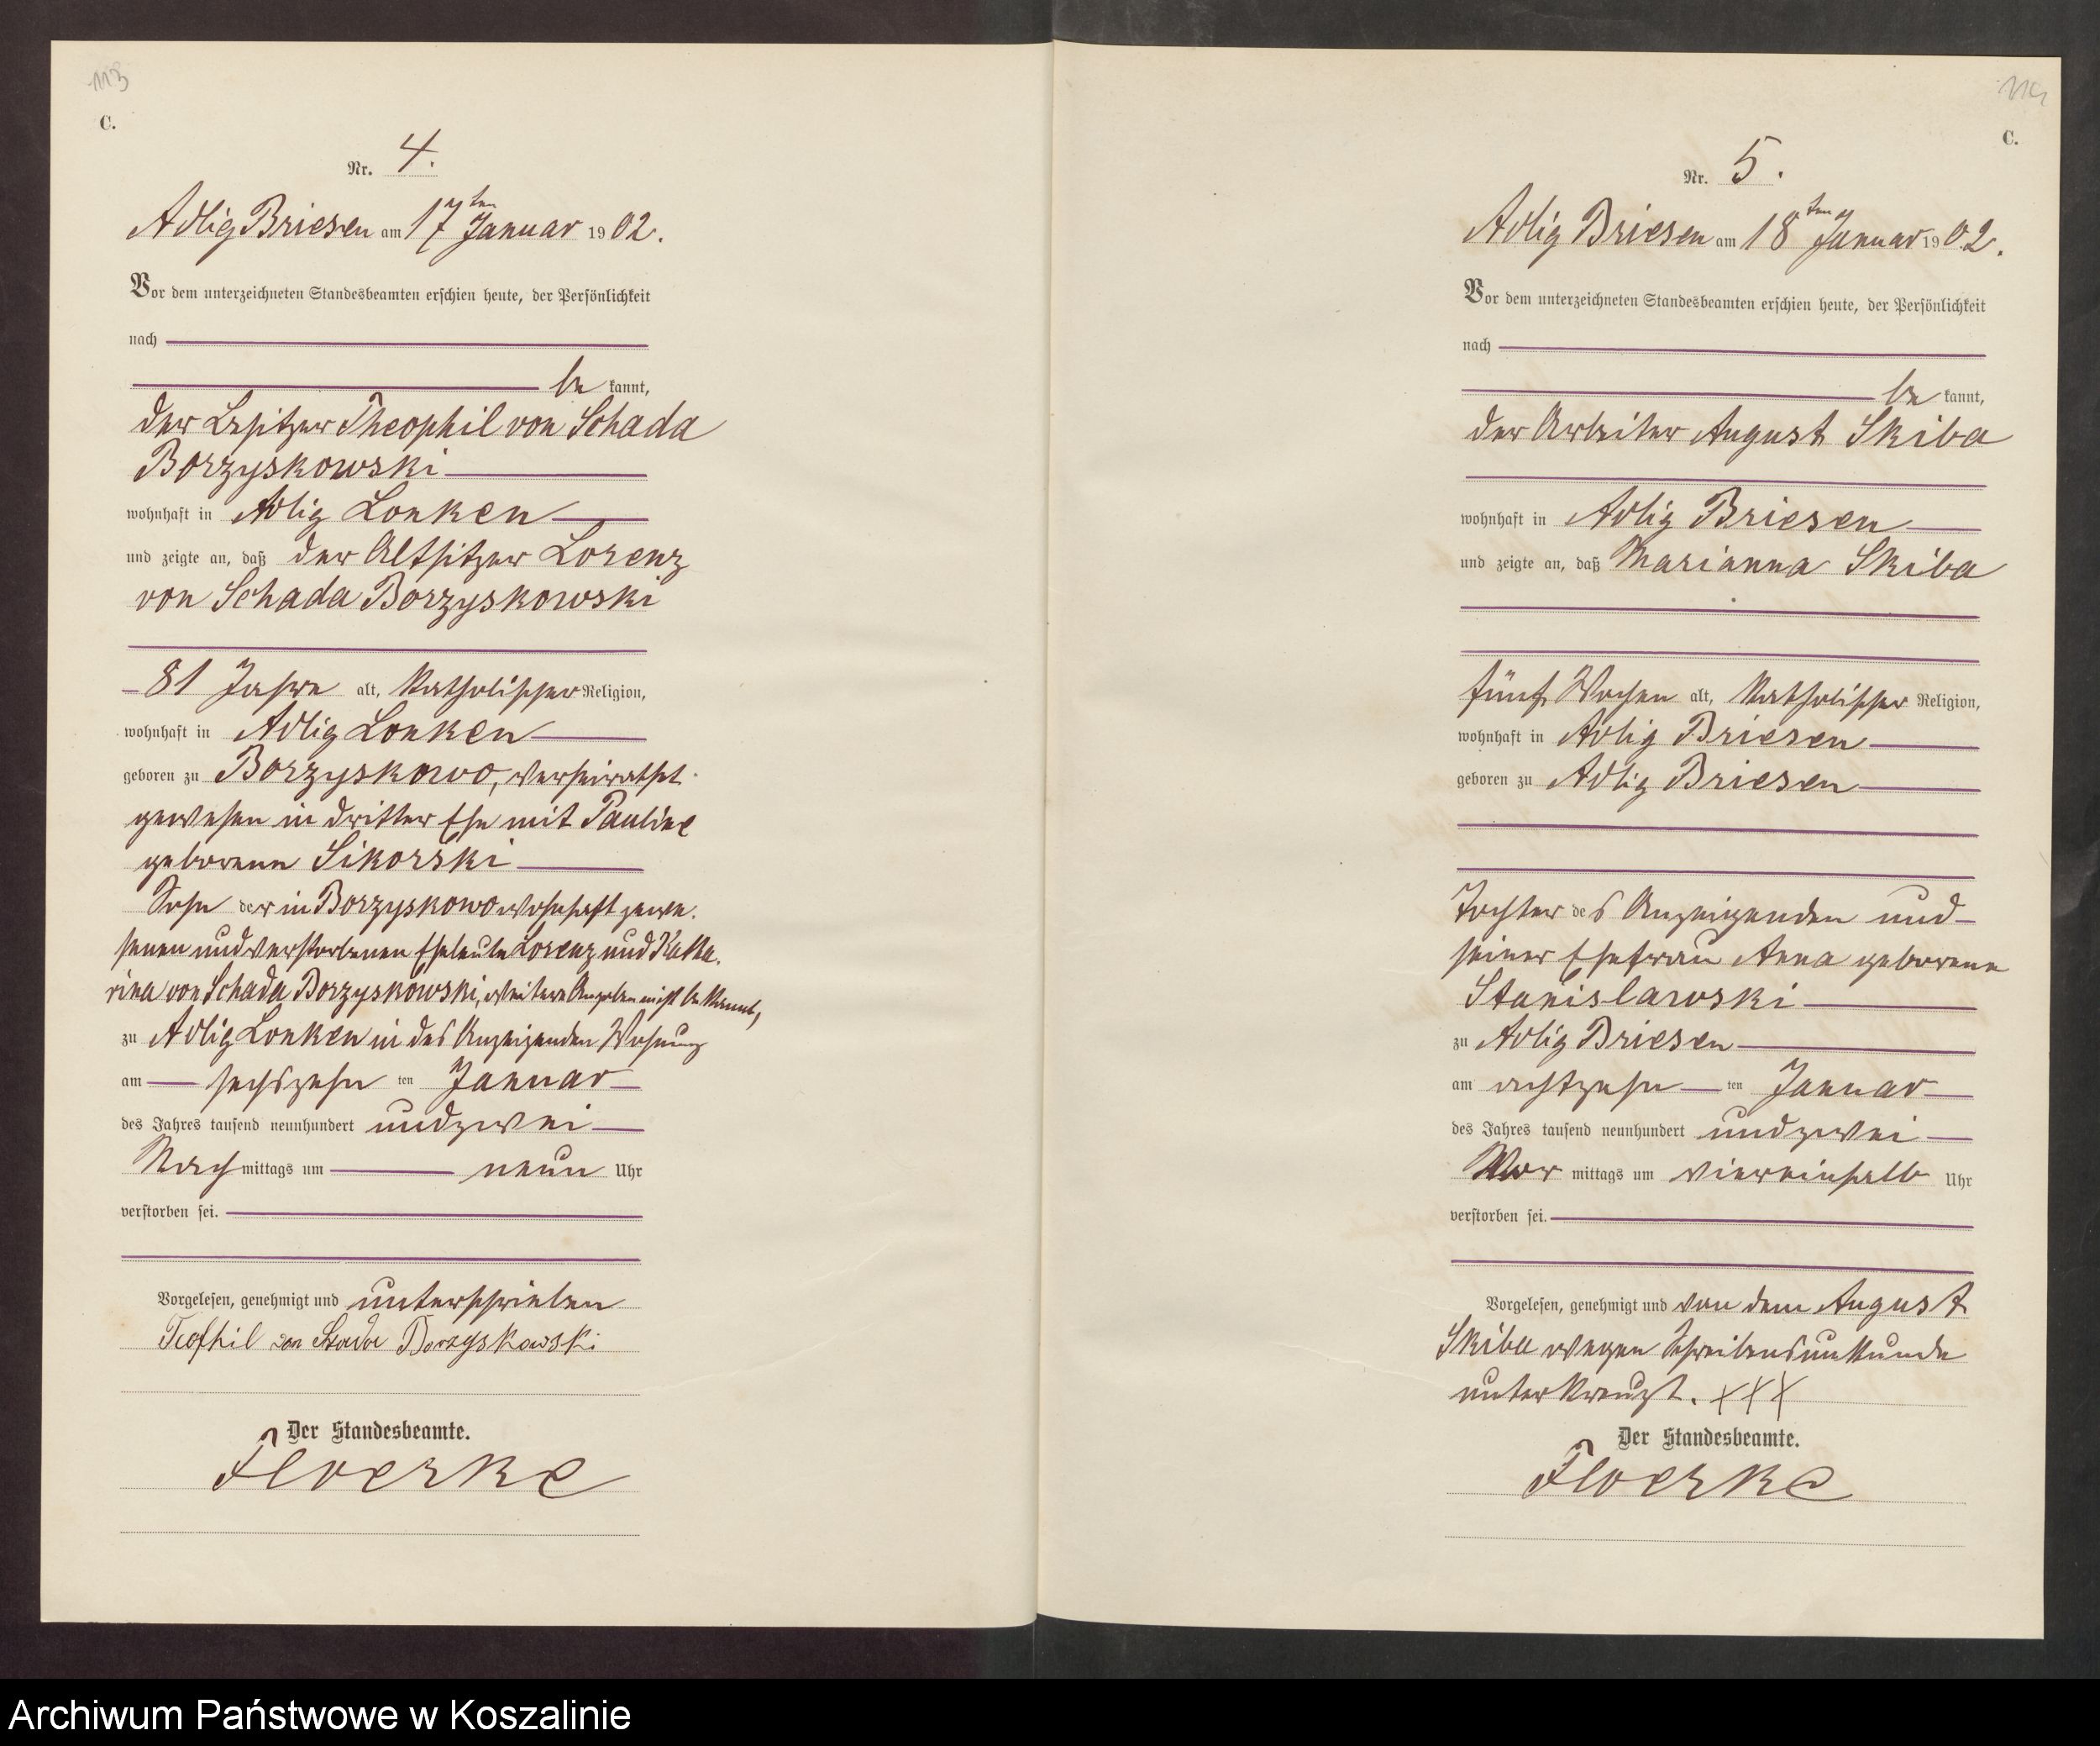 113
C.
Nr. 4.
Adlig Briesen am 17ten Januar 1902.
Vor dem unterzeichneten Standesbeamten erschien heute, der Persönlichkeit
nach
be kannt,
der Besitzer Theophil von Schada
Borzyskowski
wohnhaft in Adlig Lonken
und zeigte an, daß der Altsitzer Lorenz
von Schada Borzyskowski
81 Jahre alt, katholischer Religion,
wohnhaft in Adlig Lonken
geboren zu Borzyskowo, verheirathet
gewesen in dritter Ehe mit Pauline
geborene Sikorski
Sohn der in Borzyskowo wohnhaft gewe-
senen und verstorbenen Eheleute Lorenz und Katha-
rina von Schada Borzyskowski, weitere Angaben nicht bekannt,
zu Adlig Lonken in des Anzeigenden Wohnung
am sechszehn ten Januar
des Jahres tausend neunhundert und zwei
Nach mittags um neun Uhr
verstorben sei.
Vorgelesen, genehmigt und unterschrieben
Teofhil von Schada Borzyskowski
Der Standesbeamte.
Floerke
114
C.
Nr. 5.
Adlig Briesen am 18ten Januar 1902.
Vor dem unterzeichneten Standesbeamten erschien heute, der Persönlichkeit
nach
be kannt,
der Arbeiter August Skiba
wohnhaft in Adlig Briesen
und zeigte an, daß Marianna Skiba
fünf Wochen alt, katholischer Religion,
wohnhaft in Adlig Briesen
geboren zu Adlig Briesen
Tochter des Anzeigenden und
seiner Ehefrau Anna geborene
Stanislawski
zu Adlig Briesen
am achtzehn ten Januar
des Jahres tausend neunhundert und zwei
Vor mittags um viereinhalb Uhr
verstorben sei.
Vorgelesen, genehmigt und von dem August
Skiba wegen Schreibensunkunde
unterkreuzt. XXX
Der Standesbeamte.
Floerke
Archiwum Państwowe w Koszalinie